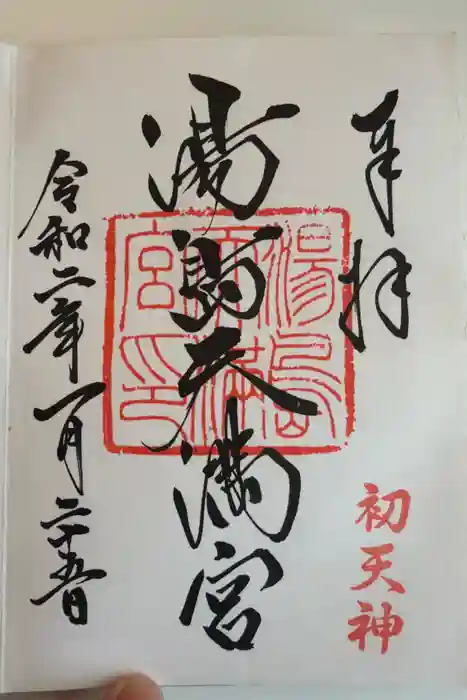 奉拝
初天神
湯島天満宮
湯島天満宮印
令和二年一月二十五日